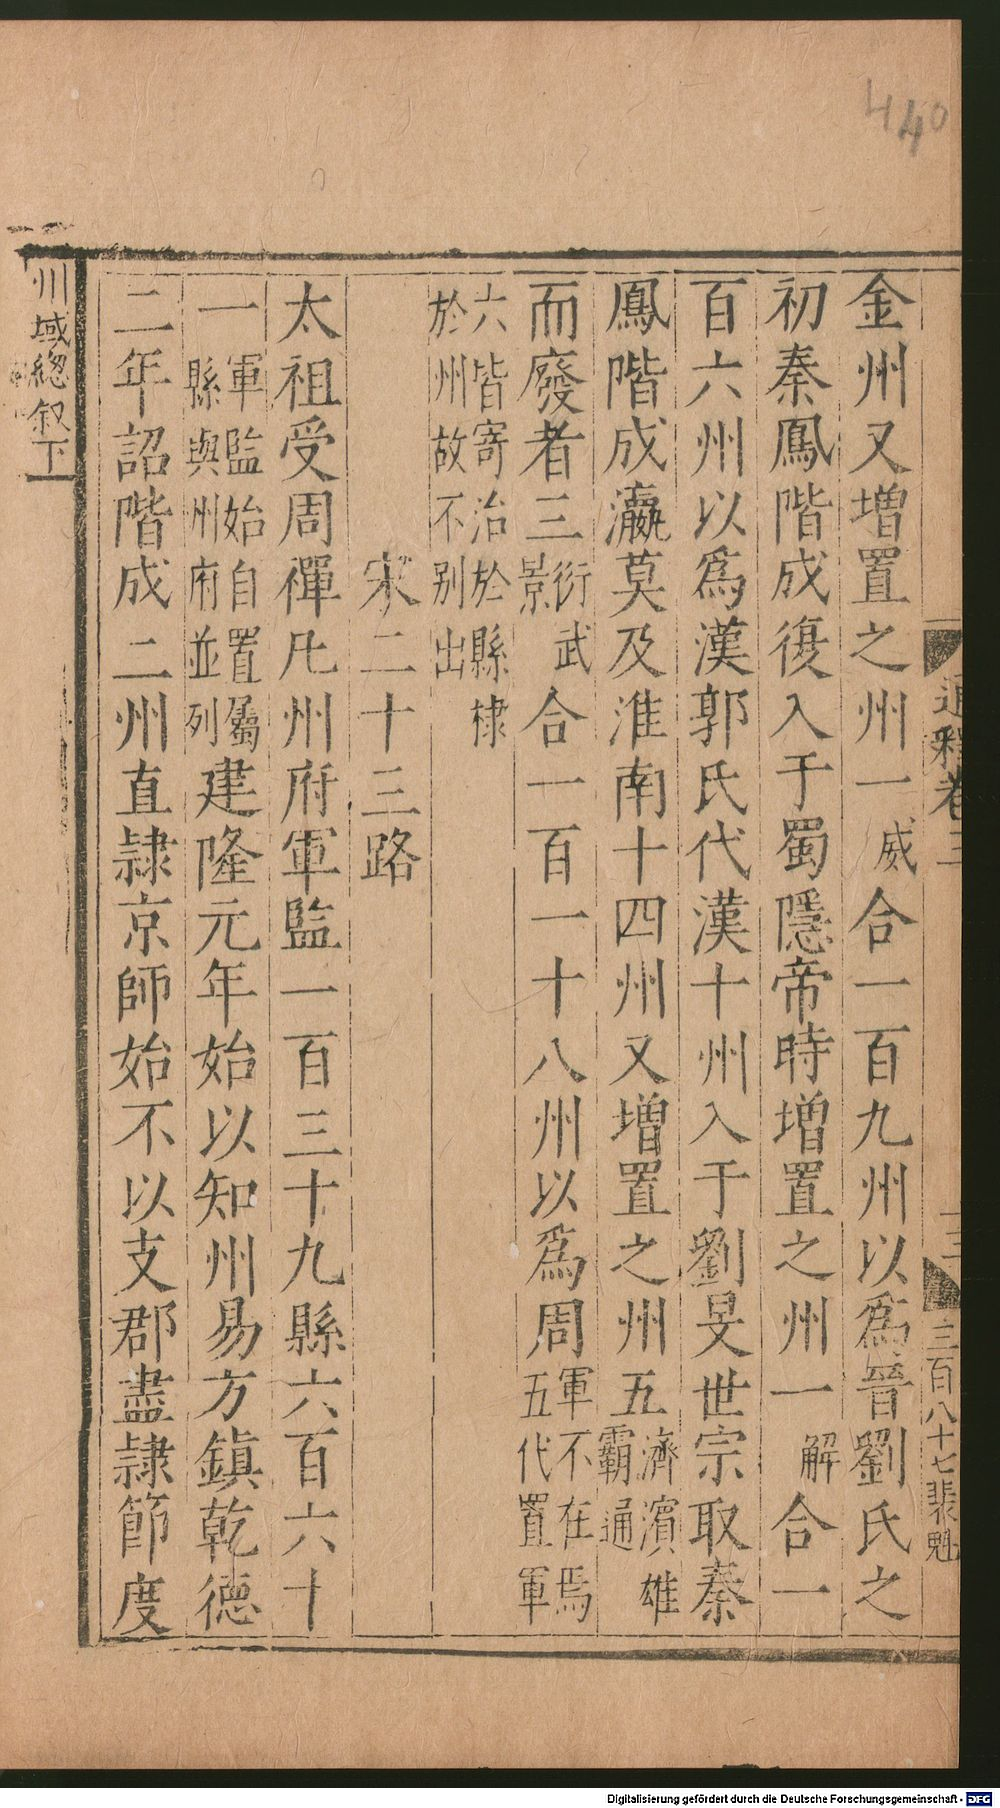 440
通釋卷三
三百八十七裴魁
金州又增置之州一威合一百九州以爲晉劉氏之
初秦鳳階成復入于蜀隱帝時增置之州一解合一
百六州以爲漢郭氏代漢十州入于劉旻世宗取秦
鳳階成瀛莫及淮南十四州又增置之州五濟濱雄
霸通
而廢者三衍武
景合一百一十八州以爲周軍不在焉
五代置軍
六皆寄治於縣棣
於州故不別出
宋二十三路
太祖受周禪凡州府軍監一百三十九縣六百六十
一軍監始自置屬
縣與州府並列建隆元年始以知州易方鎮乾德
二年詔階成二州直隸京師始不以支郡盡隸節度
州域總叙下
Digitalisierung gefördert durch die Deutsche Forschungsgemeinschaft - DFG